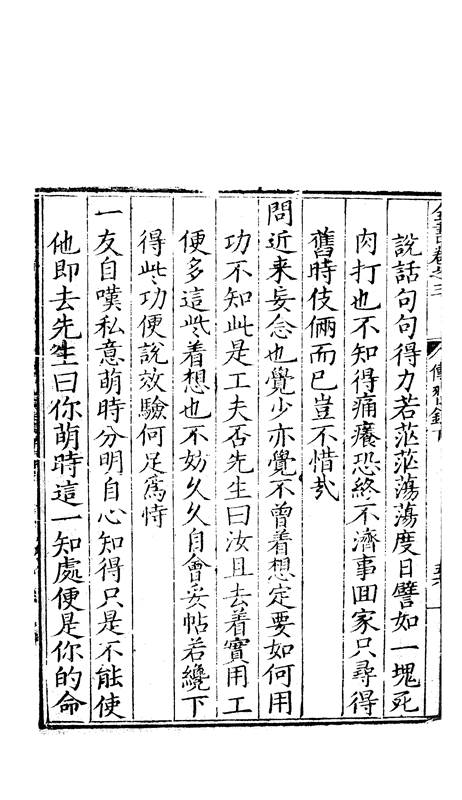 全書卷之三
傳習錄下
說話句句得力若茫茫蕩蕩度日譬如一塊死
肉打也不知得痛癢恐終不濟事回家只尋得
舊時伎倆而已豈不惜哉
問近來妄念也覺少亦覺不曾着想定要如何用
功不知此是工夫否先生曰汝且去着實用工
便多這些着想也不妨久久自會妥帖若纔下
得些功便說效驗何足為恃
一友自嘆私意萌時分明自心知得只是不能使
他即去先生曰你萌時這一知處便是你的命